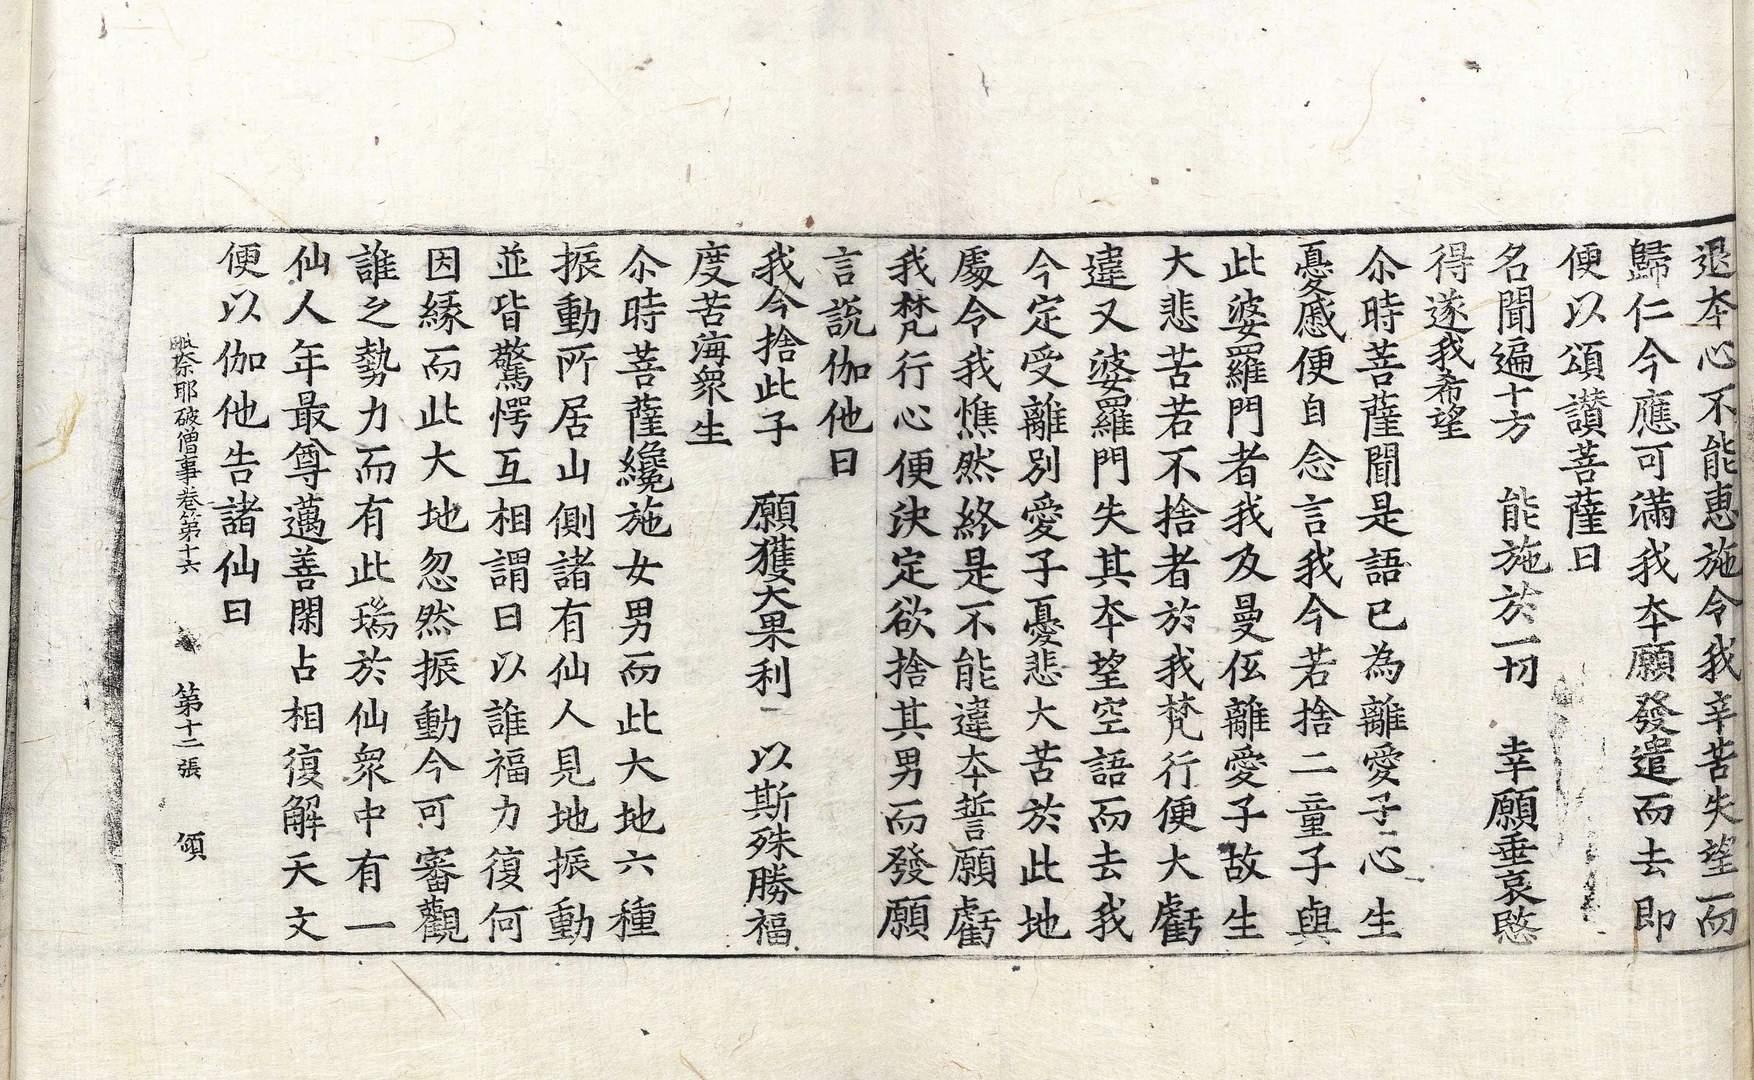 退本心不能惠施令我辛苦失望而
歸仁今應可滿我本願發遣而去即
便以頌讃菩薩曰
名聞遍十方　能施於一切　幸願垂哀愍
得遂我希望
尒時菩薩聞是語已為離愛子心生
憂慼便自念言我今若捨二童子與
此婆羅門者我及曼伭離愛子故生
大悲苦若不捨者於我梵行便大虧
違又婆羅門失其本望空語而去我
今定受離別愛子憂悲大苦於此地
處令我憔然終是不能違本誓願虧
我梵行心便決定欲捨其男而發願
言説伽他曰
我今捨此子　願獲大果利　以斯殊勝福
度苦海衆生
尒時菩薩纔施女男而此大地六種
振動所居山側諸有仙人見地振動
並皆驚愕互相謂曰以誰福力復何
因緣而此大地忽然振動今可審觀
誰之勢力而有此瑞於仙衆中有一
仙人年最尊邁善閑占相復解天文
便以伽他告諸仙曰
毗奈耶破僧事卷第十六　第十二張　傾